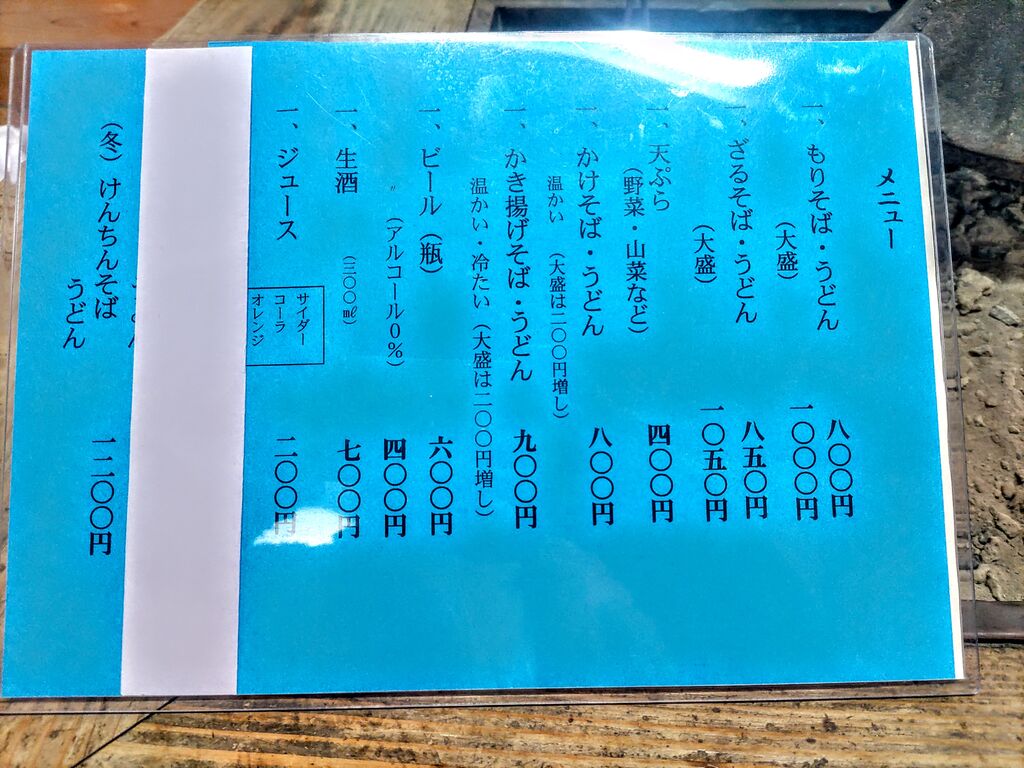 メニュー
一、もりそば・うどん 八〇〇円
(大盛) 一〇〇〇円
一、ざるそば・うどん 八五〇円
(大盛) 一〇五〇円
一、天ぷら 四〇〇円
(野菜・山菜など)
一、かけそば・うどん 八〇〇円
温かい (大盛は二〇〇円増し)
一、かき揚げそば・うどん 九〇〇円
温かい・冷たい (大盛は二〇〇円増し)
一、ビール(瓶) 六〇〇円
〃 (アルコール0%) 四〇〇円
一、生酒 (三〇〇㎖) 七〇〇円
一、ジュース 二〇〇円
サイダー
コーラ
オレンジ
(冬)けんちんそば 一二〇〇円
うどん